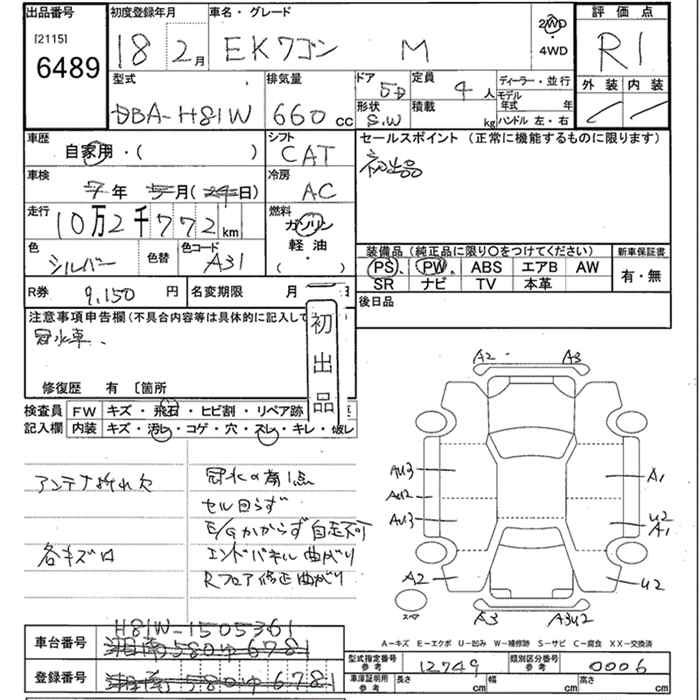 出品番号
[2115]
6489
初度登録年月
18 2月
車名・グレード
EKワゴン M
2WD
・
4WD
評価点
R1
外装 内装
型式
DBA-H81W
排気量
660 cc
ドア 5D
形状 S.W
定員 4人
積載 kg
ディーラー・並行
モデル年式 年
ハンドル 左・右
車歴
自家用・( )
シフト
CAT
セールスポイント (正常に機能するものに限ります)
初出品
車検
7年 5月(24日)
冷房
AC
走行
10万2千772km
燃料
ガソリン
軽油
( )
色
シルバー
色替
色コード
A31
装備品(純正品に限り○をつけてください)
PS、 PW、 ABS エアB AW
SR ナビ TV 本革
新車保証書
有・無
R券 9,150 円
名変期限 月 日
後日品
注意事項申告欄(不具合内容等は具体的に記入して
冠水車、
初出品
修復歴 有 〔箇所
検査員
記入欄
FW キズ・飛石・ヒビ割・リペア跡
内装 キズ・汚レ・コゲ・穴・スレ・キレ・破レ
アンテナ折れ欠
各キズ凹
セル回らず
E/Gかからず自走不可
エンドパネル曲がり
Rフロア修正曲がり
A2 A3
AU3
AU2
AU3
A1
U2
A1
A2
U2
スペア
A3 A3U2
A-キズ E-エクボ U-凹み W-補修跡 S-サビ C-腐食 XX-交換済
車台番号
H81W-1505361
登録番号
型式指定番号
参考
12749
類別区分番号
参考
0006
車庫証明用
参考
長さ cm 幅 cm 高さ cm